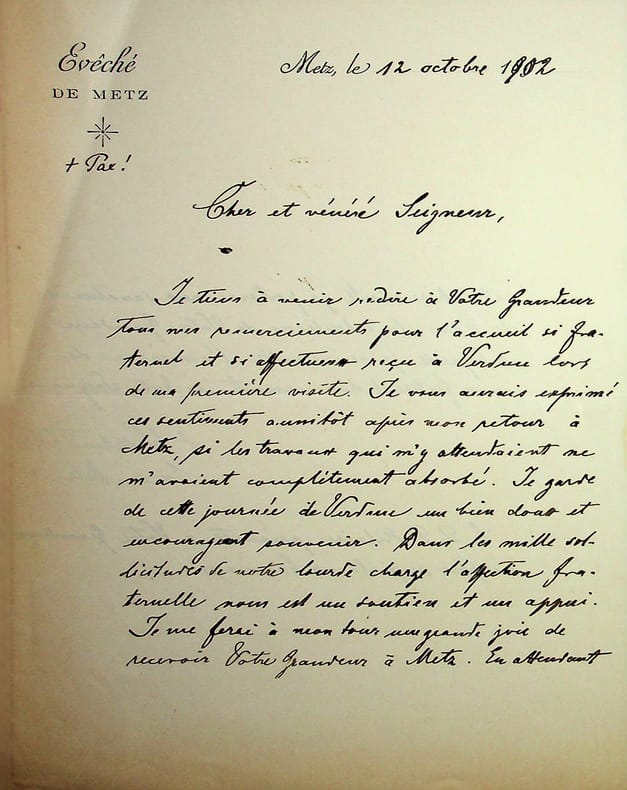 Evêché
DE METZ
+ Pax !
Metz, le 12 octobre 1902
Cher et vénéré Seigneur,
Je tiens à venir redire à Votre Grandeur
tous mes remerciements pour l'accueil si fra-
ternel et si affectueux reçu à Verdun lors
de ma première visite. Je vous aurais exprimé
ces sentiments aussitôt après mon retour à
Metz, si les travaux qui m'y attendaient ne
m'avaient complètement absorbé. Je garde
de cette journée de Verdun un bien doux et
encourageant souvenir. Dans les mille sol-
licitudes de notre lourde charge l'affection fra-
ternelle nous est un soutien et un appui.
Je me ferai à mon tour une grande joie de
recevoir Votre Grandeur à Metz. En attendant